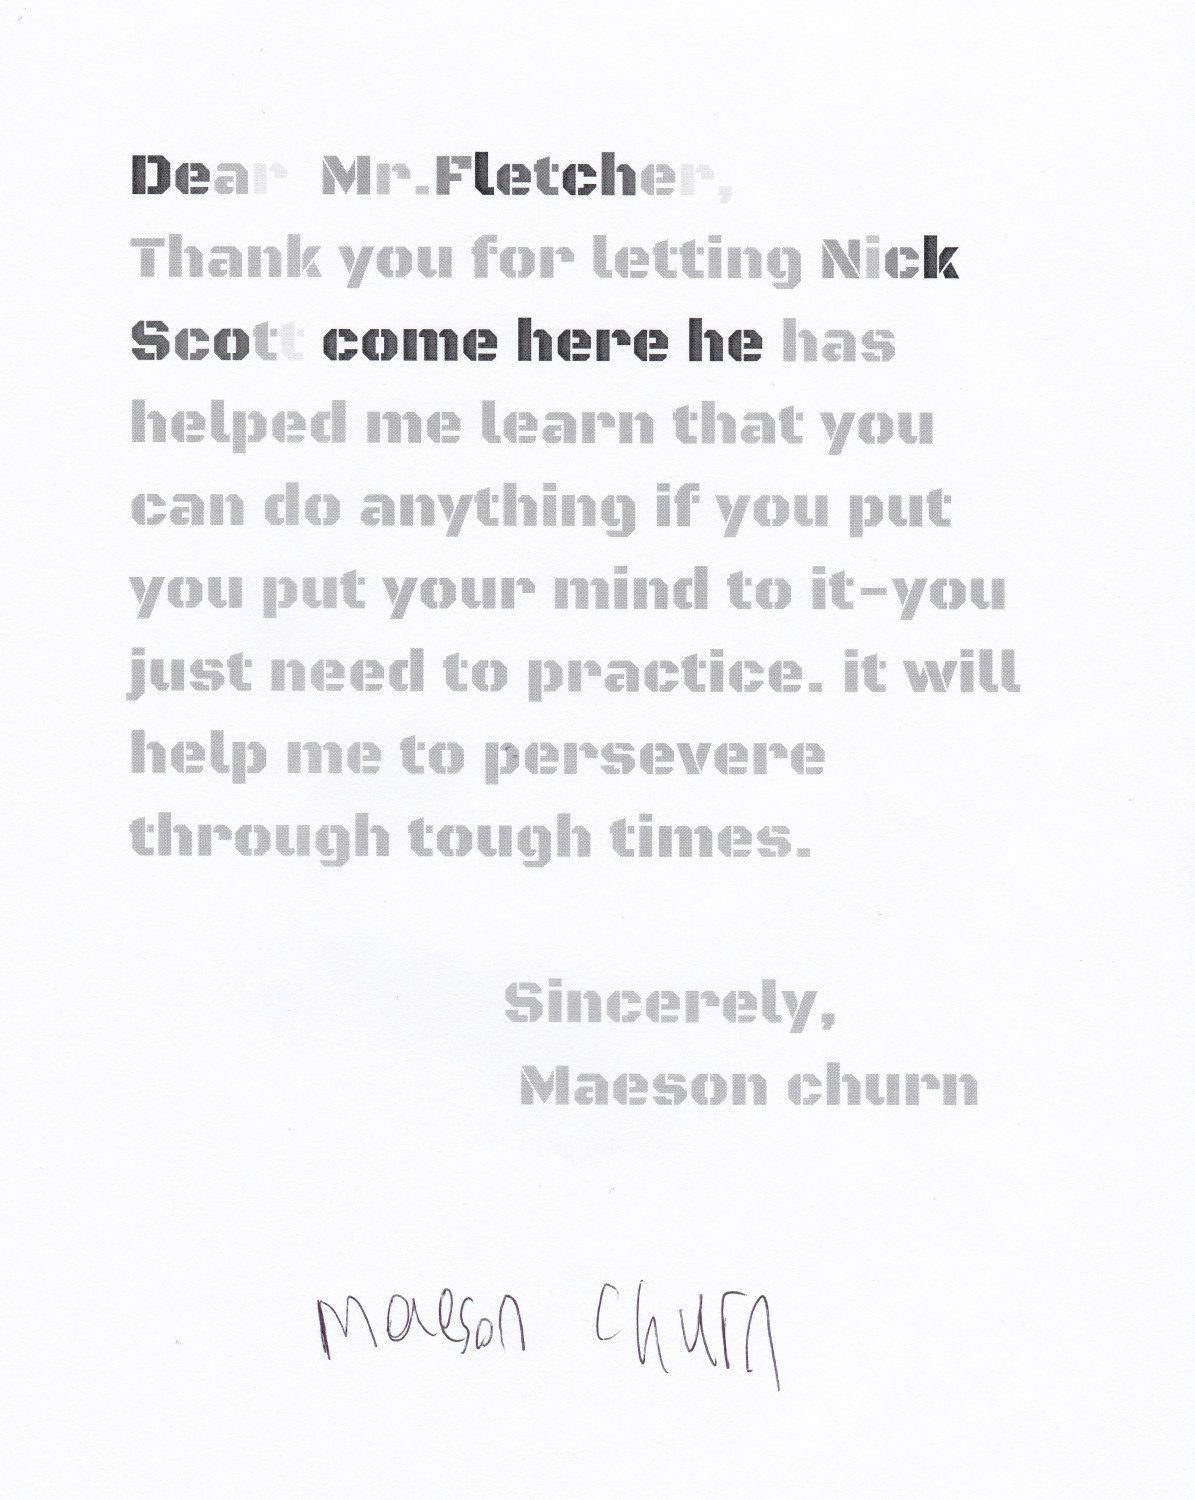 Dear Mr.Fletcher,
Thank you for letting Nick
Scott come here he has
helped me learn that you
can do anything if you put
you put your mind to it-you
just need to practice. it will
help me to persevere
through tough times.
Sincerely,
Maeson churn
Maeson Churn